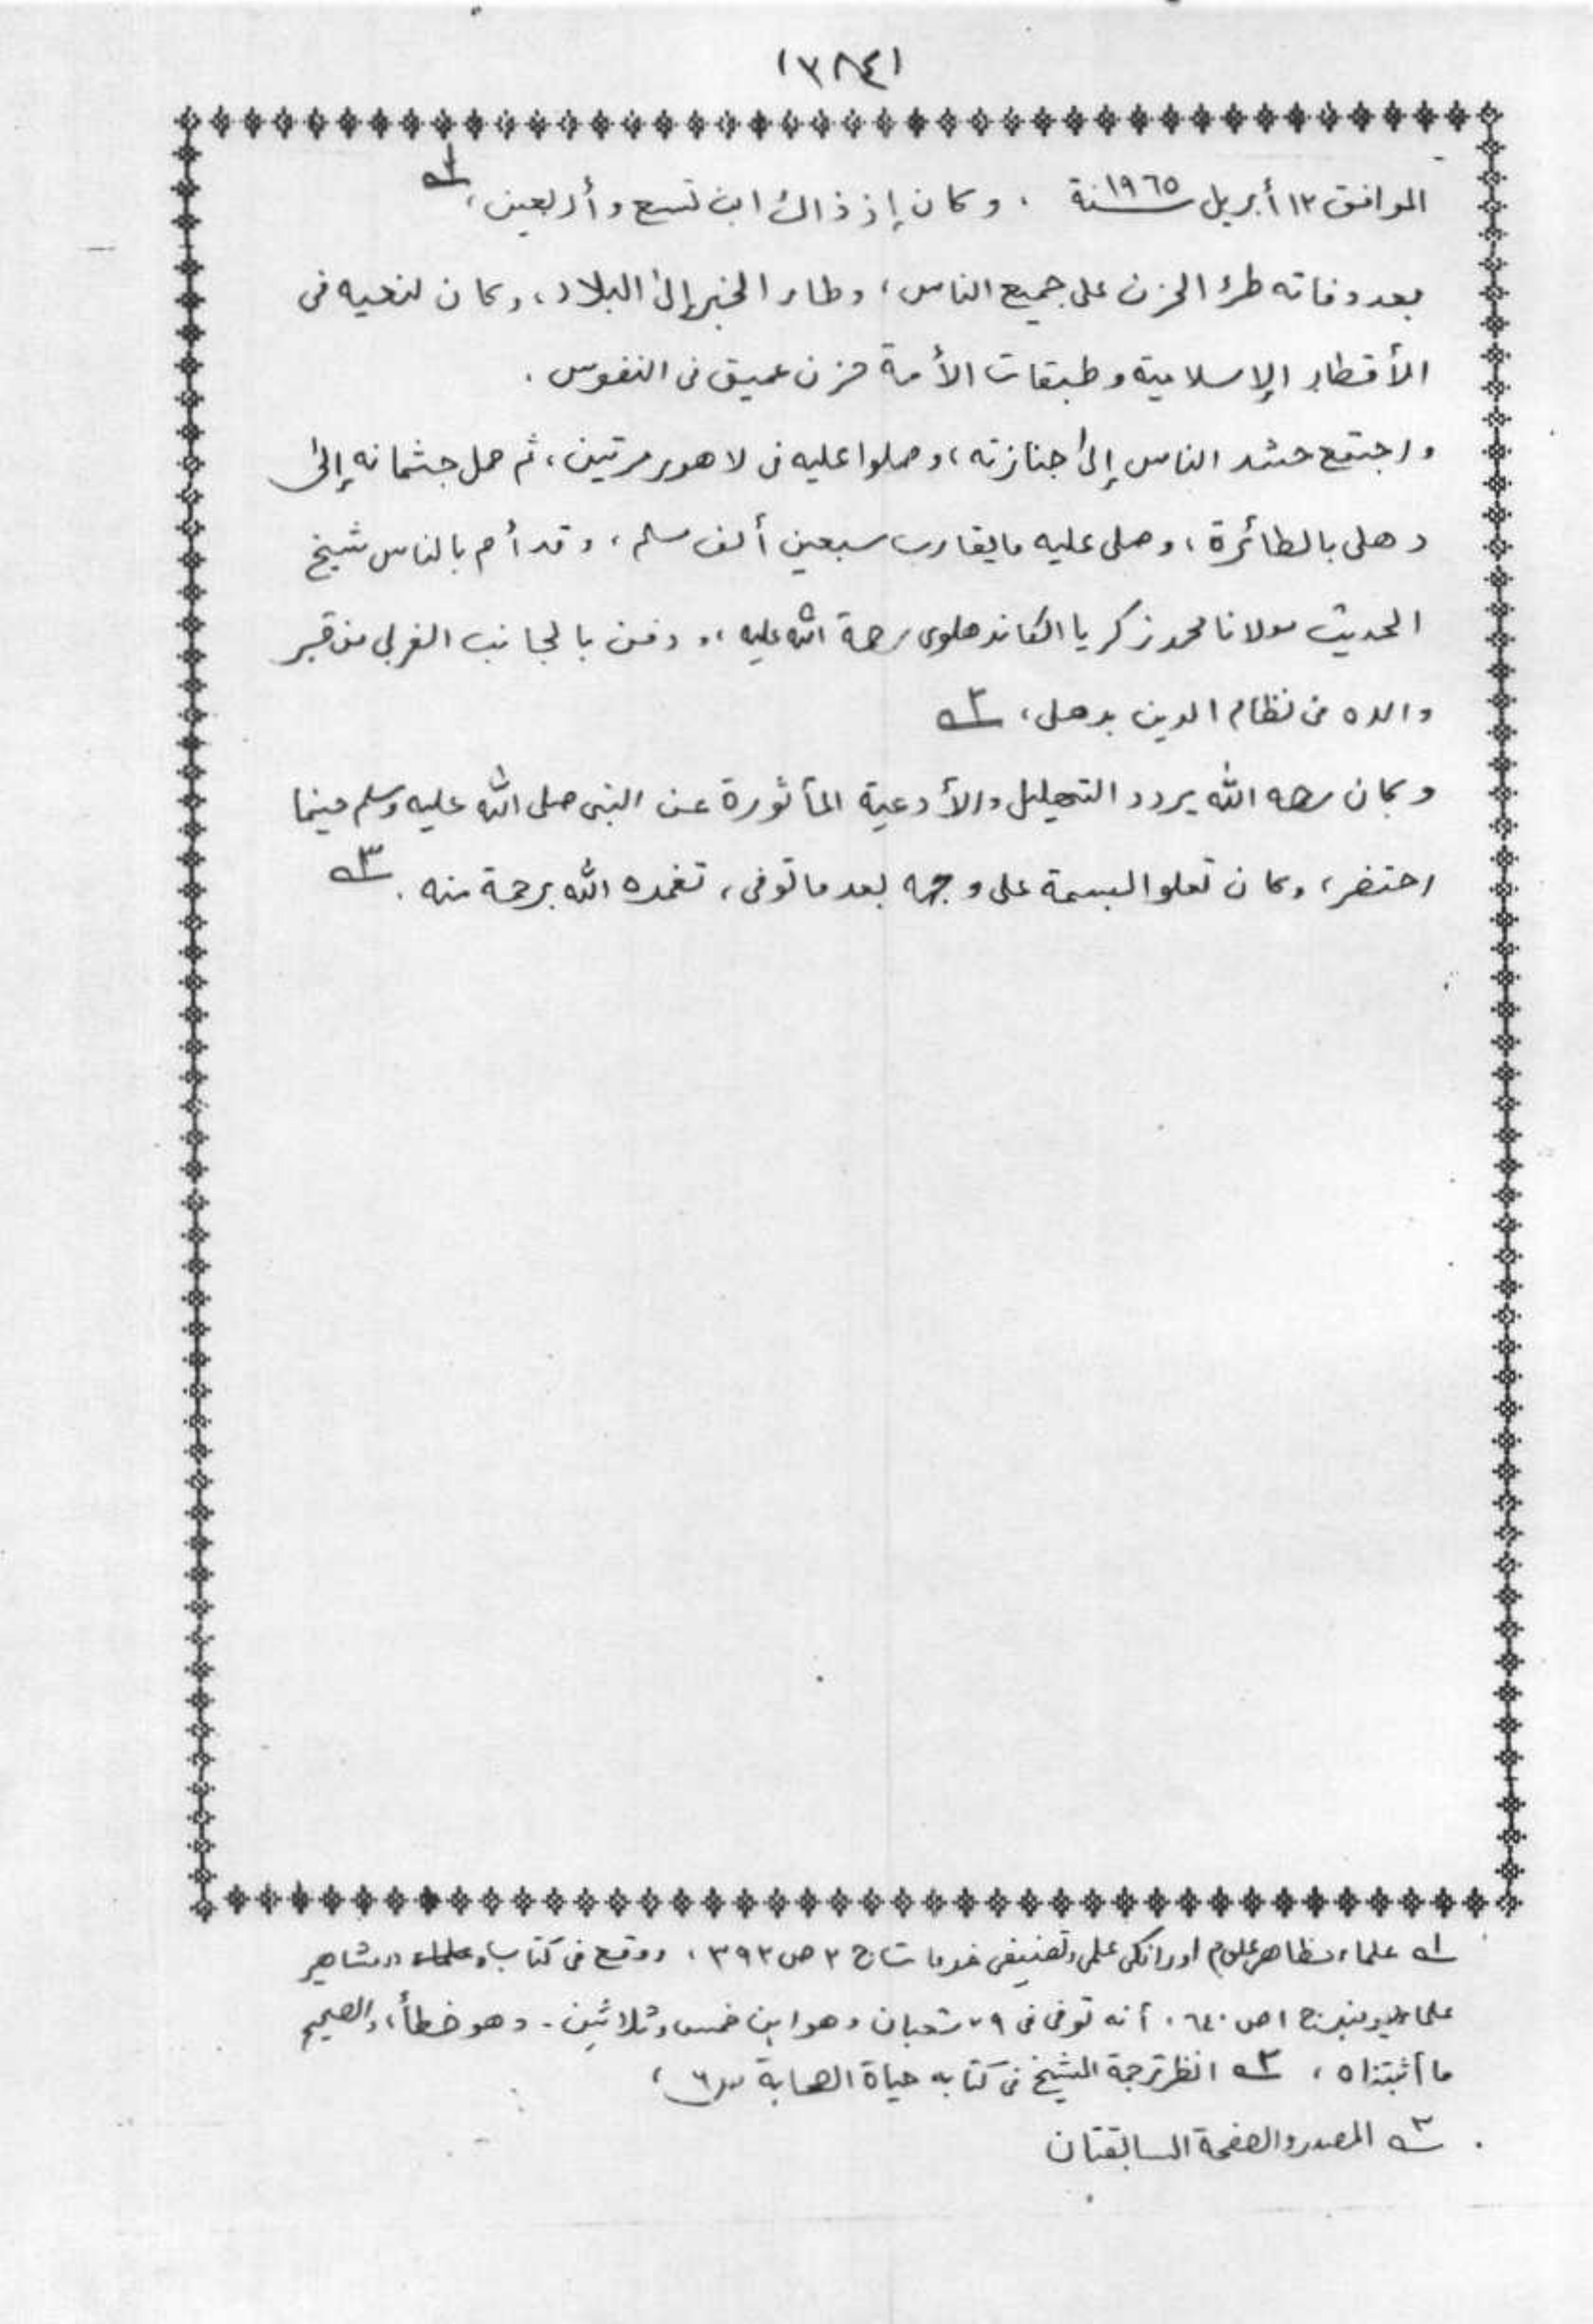 (٣٨٤)
الموافق ١٢ أبريل سنة ١٩٦٥ ، وكان إذ ذاك ابن تسع وأربعين، ١ـه
بعد وفاته طرأ الحزن على جميع الناس، وطار الخبر إلى البلاد، وكان لنعيه فى
الأقطار الإسلامية وطبقات الأمة حزن عميق فى النفوس .
واجتمع حشد الناس إلى جنازته، وصلوا عليه فى لاهور مرتين، ثم حمل جثمانه إلى
دهلى بالطائرة، وصلى عليه مايقارب سبعين ألف مسلم، وقد أم بالناس شيخ
الحديث مولانا محمد زكريا الكاندهلوى رحمة الله عليه،، ودفن بالجانب الغربى من قبر
والده فى نظام الدين بدهلى، ٢ـه
وكان رحمه الله يردد التهليل والأدعية المأثورة عن النبى صلى الله عليه وسلم حينما
احتضر، وكان تعلو البسمة على وجهه بعد ما توفى، تغمده الله برحمة منه . ٣ـه
١ـه علماء مظاهر علوم اور انكى علمى وتصنيفى خدمات ج ٢ ص ٣٩٢، ووقع فى كتاب مشاهير
علماء ديوبند ج ١ ص ٦٤٠، أنه توفى فى ٢٩ شعبان وهو ابن خمس وثلاثين - وهو خطأ، والصحيح
ما أثبتناه ، ٢ـه انظر ترجمة الشيخ فى كتابه حياة الصحابة ص٦ ،
٣ـه المصدر والصفحة السابقتان